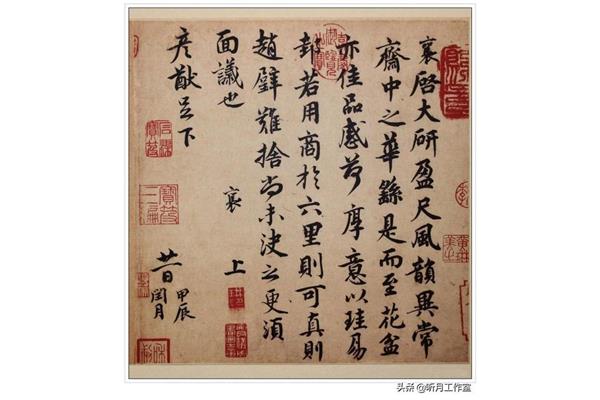 襄啓大研盈尺風韻異常
齋中之華繇是而至花盆
亦佳品感荷厚意以珪易
邽若用商於六里則可真則
趙璧難捨尚未決之更須
面議也 襄上
彥猷足下
廿一日
甲辰
閏月
头条 @昕月工作室